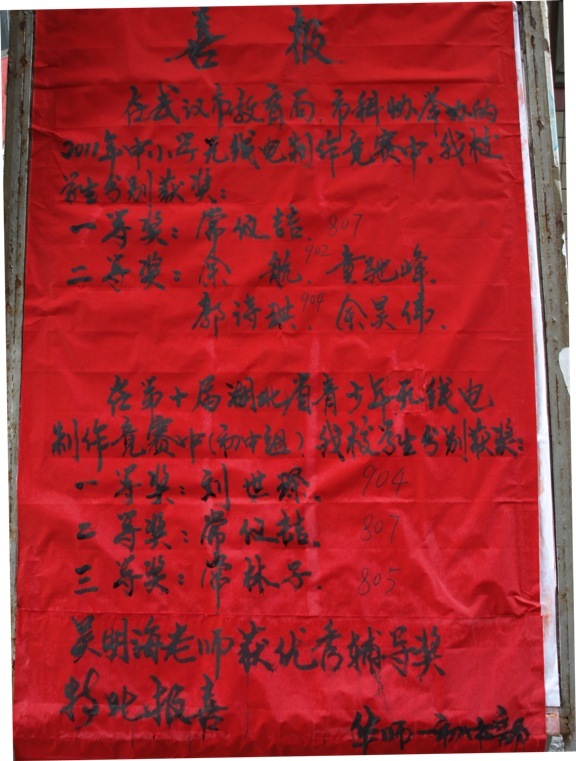 喜报
在武汉市教育局、市科协举办的
2011年中小学无线电制作竞赛中,我校
学生分别获奖:
一等奖:常仪喆、807
二等奖:余航、902 黄驰峰、
郭诗琪、904 余昊伟、
在第十届湖北省青少年无线电
制作竞赛中(初中组),我校学生分别获奖:
一等奖:刘世 904
二等奖:常仪喆、807
三等奖:常林子、805
吴明海老师获优秀辅导奖
特此报喜
华师一